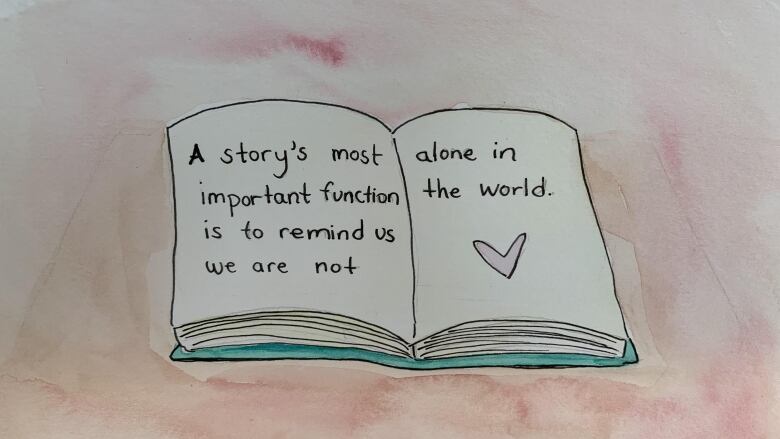 A story's most
important function
is to remind us
we are not
alone in
the world.